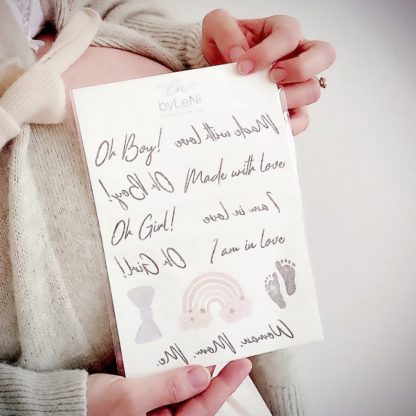 byLeNi
Oh Boy! Made with love
Oh Boy! Made with love
Oh Girl! I am in love
Oh Girl! I am in love
Woman. Mom. Me.